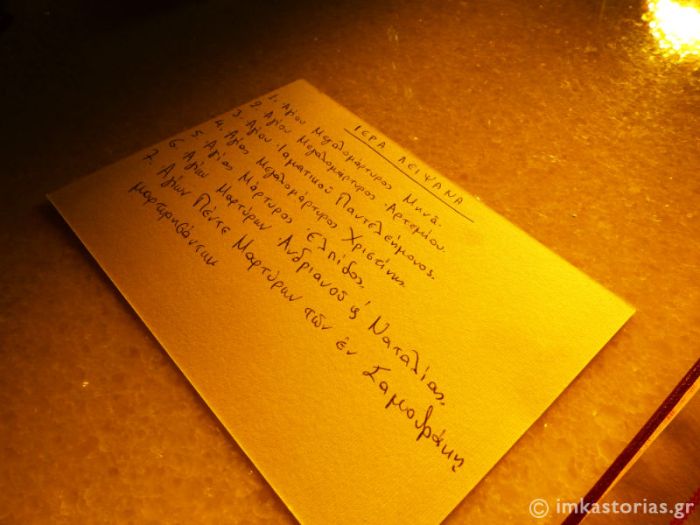 ΙΕΡΑ ΛΕΙΨΑΝΑ
1. Αγίου Μεγαλομάρτυρος Μηνά.
2. Αγίου Μεγαλομάρτυρος Αρτεμίου.
3. Αγίου Ιαματικού Παντελεήμονος.
4. Αγίας Μεγαλομάρτυρος Χριστίνης
5. Αγίας Μάρτυρος Ελπίδος.
6. Αγίων Μαρτύρων Ανδριανού & Ναταλίας.
7. Αγίων Πέντε Μαρτύρων τῶν ἐν Σαμοθράκη
μαρτυρησάντων
© imkastorias.gr